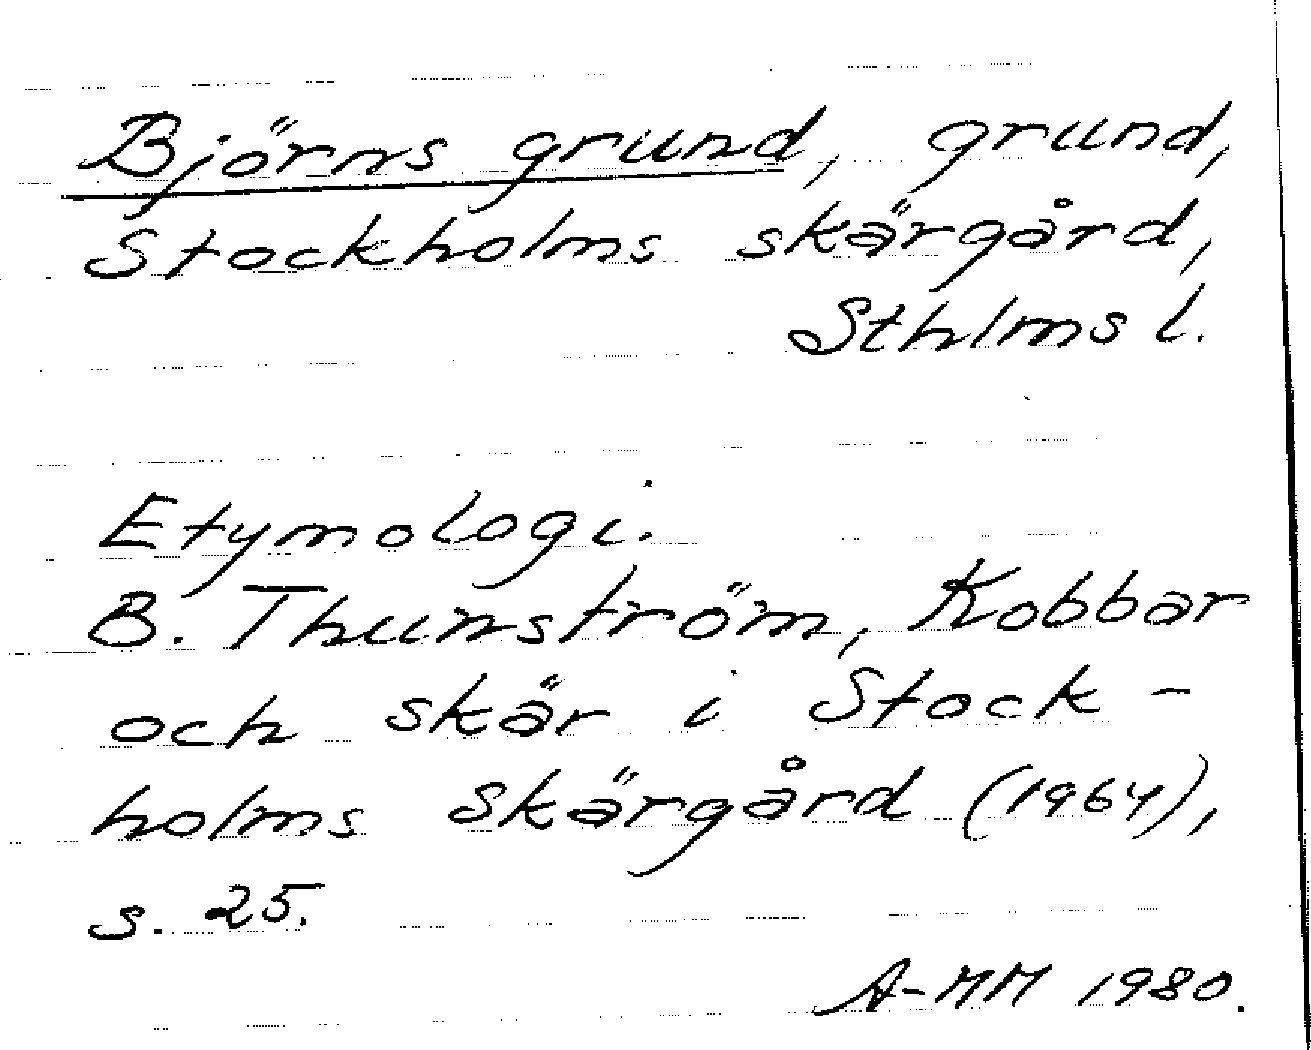 Björns grund, grund,
Stockholms skärgård,
Sthlms l.
Etymologi.
B. Thunström, Kobbar
och skär i Stock-
holms skärgård (1964),
s. 25.
A-MM 1980.